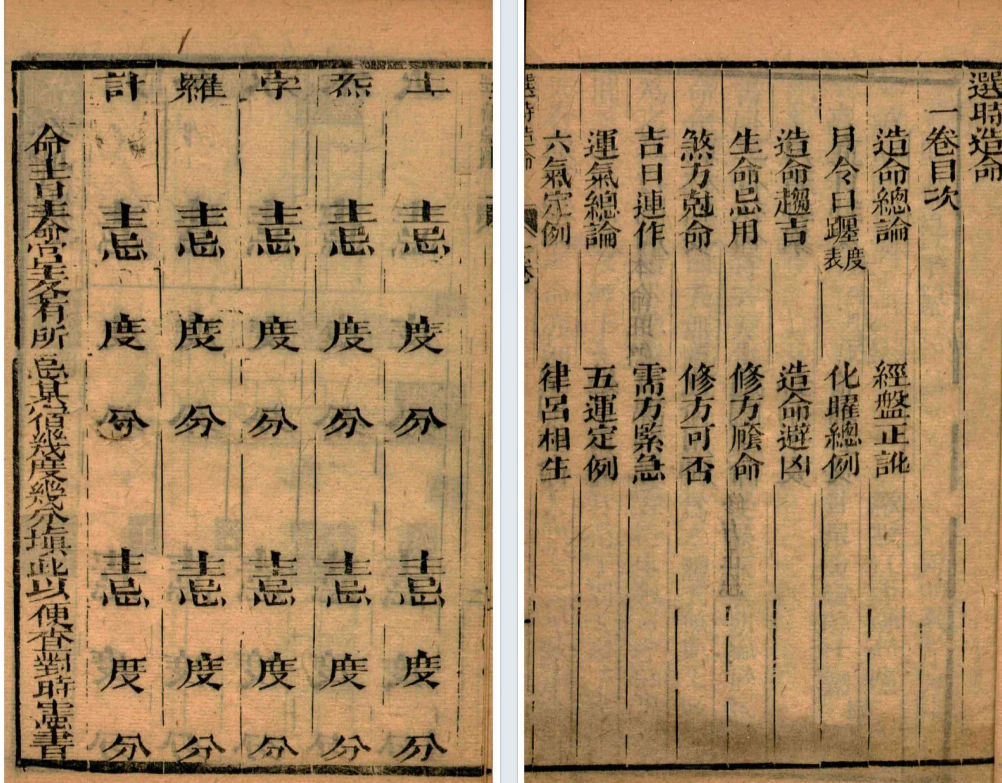 選時造命
一卷目次
造命總論 經盤正訛
月令日躔度表 化曜總例
造命趨吉 造命避凶
生命忌用 修方廕命
煞方尅命 修方可否
吉日連作 需方緊急
運氣總論 五運定例
六氣定例 律呂相生
土 主忌 度 分 主忌 度 分
炁 主忌 度 分 主忌 度 分
孛 主忌 度 分 主忌 度 分
羅 主忌 度 分 主忌 度 分
計 主忌 度 分 主忌 度 分
命主日主命宮主各有所忌其値幾度幾分塡此以便查對時憲書